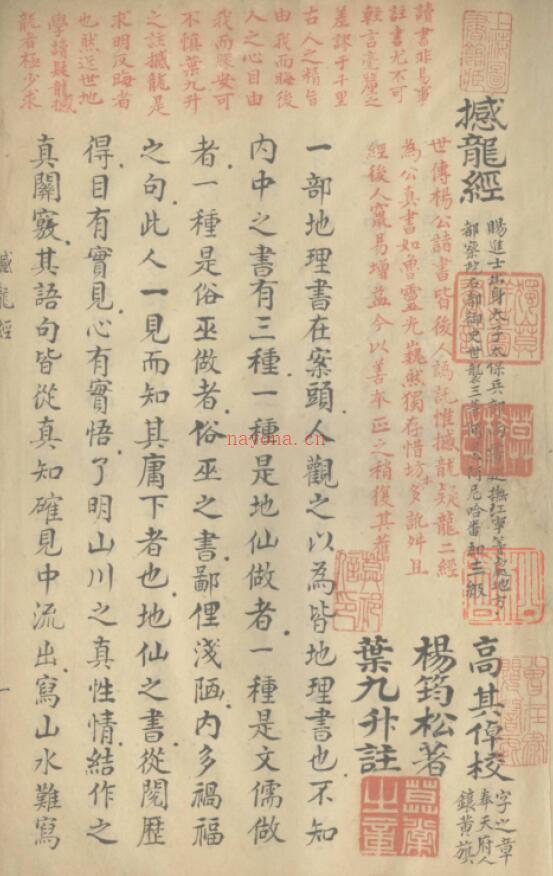 撼龍經
賜進士出身太子太保兵部尚書
都察院右都御史世襲三等
高其倬校
字之章
奉天府人
鑲黃旗
楊筠松著
葉九升註
世傳楊公諸書皆後人偽託惟撼龍疑龍二經
為公真書如魯靈光巍然獨存惜坊本多訛舛且
經後人竄易增益今以善本正之稍復其舊
一部地理書在案頭人觀之以為皆地理書也不知
內中之書有三種一種是地仙做者一種是文儒做
者一種是俗巫做者俗巫之書鄙俚淺陋內多禍福
之句此人一見而知其庸下者也地仙之書從閱歷
得目有實見心有實悟了明山川之真性情結作之
真關竅其語句皆從真知確見中流出寫山水難寫
讀書非易事
註書尤不可
輕言毫釐之
差謬于千里
古人之精旨
由我而晦後
人之心目由
我而蔽安可
不慎葉九升
之註撼龍是
求明反晦者
也然近世地
學諸疑龍撼
龍者極少求
撼龍經
一
nayona.cn